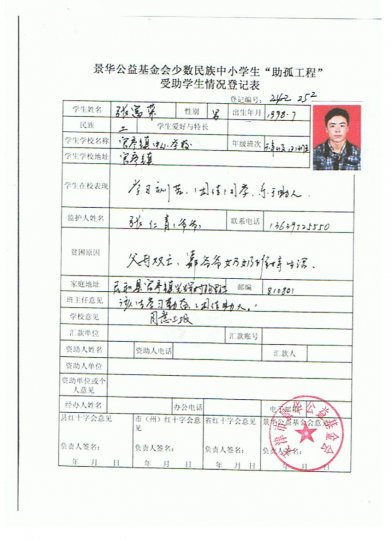 景华公益基金会少数民族中小学生“助孤工程”
受助学生情况登记表
登记编号: 242 252
学生姓名 张富荣 性别 男 出生年月 1998.7
民族 土 学生爱好与特长
学生学校名称 官亭镇中心学校 年级班次
学生学校地址 官亭镇
学生在校表现 学习刻苦、团结同学、乐于助人.
监护人姓名 张仁青 爷爷 联系电话 13629725550
贫困原因 父母双亡、靠爷爷奶奶 生活.
家庭地址 民和县官亭镇 邮编 810801
班主任意见 该生学习勤奋、团结助人.
学校意见 同意上报
汇款单位 汇款账号
资助人姓名 资助人电话 汇款人
资助人单位
资助单位或个人意见
经办人姓名 办公电话 电子邮箱
县红十字会意见 市（州）红十字会意见 省红十字会意见 景华公益基金会意见
负责人签名: 负责人签名: 负责人签名: 负责人签名:
年 月 日 年 月 日 年 月 日 年 月 日
公益基金会